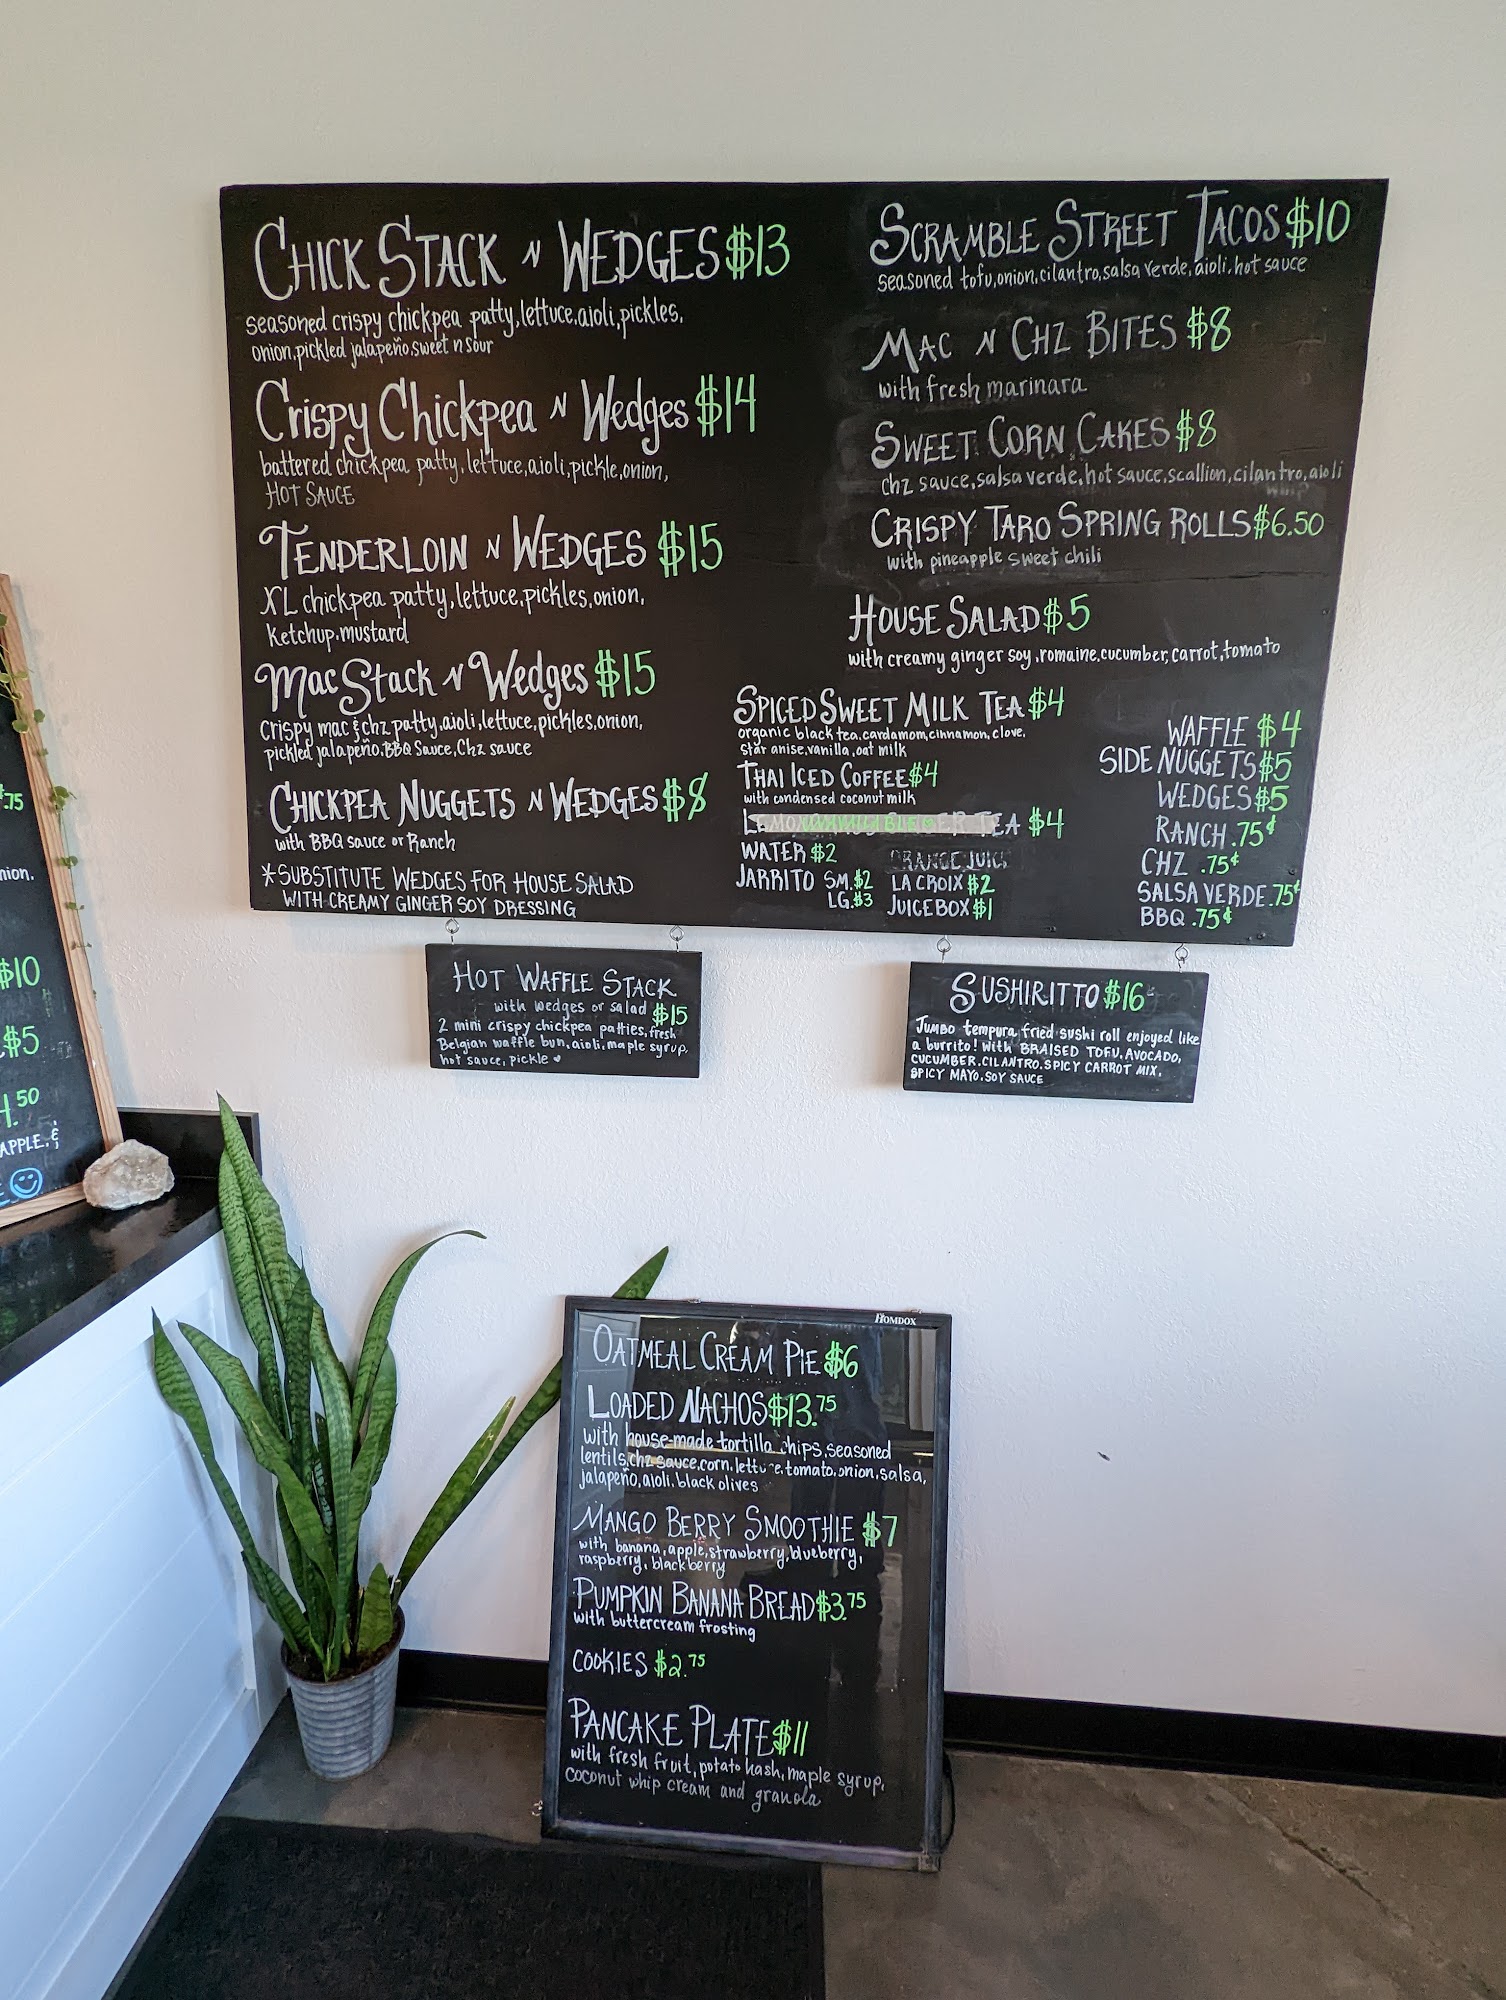 CHICK STACK N WEDGES $13
seasoned crispy chickpea patty, lettuce, aioli, pickles,
onion, pickled jalapeño, sweet n sour
Crispy Chickpea N Wedges $14
battered chickpea patty, lettuce, aioli, pickle, onion,
HOT SAUCE
TENDERLOIN N WEDGES $15
XL chickpea patty, lettuce, pickles, onion,
ketchup, mustard
Mac Stack N Wedges $15
crispy mac & chz patty, aioli, lettuce, pickles, onion,
pickled jalapeño, BBQ Sauce, Chz sauce
CHICKPEA NUGGETS N WEDGES $8
with BBQ sauce or Ranch
*SUBSTITUTE WEDGES FOR HOUSE SALAD
WITH CREAMY GINGER SOY DRESSING
SCRAMBLE STREET TACOS $10
seasoned tofu, onion, cilantro, salsa verde, aioli, hot sauce
MAC N CHZ BITES $8
with fresh marinara
SWEET CORN CAKES $8
chz sauce, salsa verde, hot sauce, scallion, cilantro, aioli
CRISPY TARO SPRING ROLLS $6.50
with pineapple sweet chili
HOUSE SALAD $5
with creamy ginger soy, romaine, cucumber, carrot, tomato
SPICED SWEET MILK TEA $4
organic black tea, cardamom, cinnamon, clove,
star anise, vanilla, oat milk
THAI ICED COFFEE $4
with condensed coconut milk
TEA $4
WATER $2
JARRITO SM. $2
LG. $3
ORANGE JUICE
LA CROIX $2
JUICE BOX $1
WAFFLE $4
SIDE NUGGETS $5
WEDGES $5
RANCH .75¢
CHZ .75¢
SALSA VERDE .75¢
BBQ .75¢
HOT WAFFLE STACK
with wedges or salad $15
2 mini crispy chickpea patties, fresh
Belgian waffle bun, aioli, maple syrup,
hot sauce, pickle ♥
SUSHIRITTO $16
JUMBO tempura fried sushi roll enjoyed like
a burrito! with BRAISED TOFU, AVOCADO,
CUCUMBER, CILANTRO, SPICY CARROT MIX,
SPICY MAYO, SOY SAUCE
.75
nion.
$10
$5
.50
APPLE, &
HOMDOX
OATMEAL CREAM PIE $6
LOADED NACHOS $13.75
with house-made tortilla chips, seasoned
lentils, chz sauce, corn, lettuce, tomato, onion, salsa,
jalapeño, aioli, black olives
MANGO BERRY SMOOTHIE $7
with banana, apple, strawberry, blueberry,
raspberry, blackberry
PUMPKIN BANANA BREAD $3.75
with buttercream frosting
COOKIES $2.75
PANCAKE PLATE $11
with fresh fruit, potato hash, maple syrup,
coconut whip cream and granola